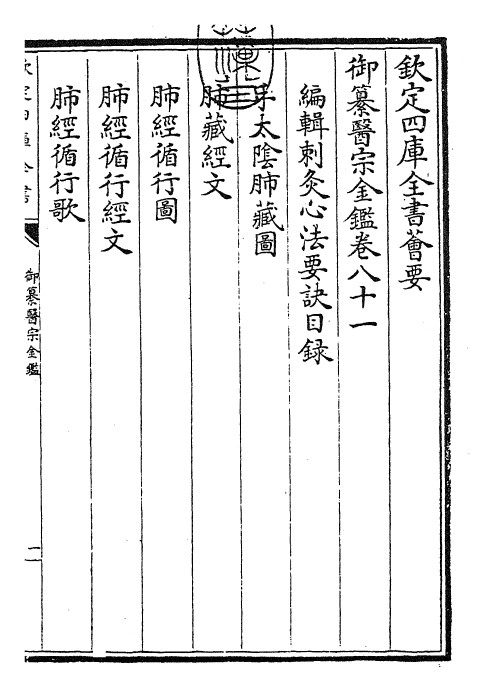 欽定四庫全書薈要
御纂醫宗金鑑卷八十一
編輯刺灸心法要訣目録
手太陰肺藏圖
肺藏經文
肺經循行圖
肺經循行經文
肺經循行歌
欽定四庫全書
御纂醫宗金鑑
一